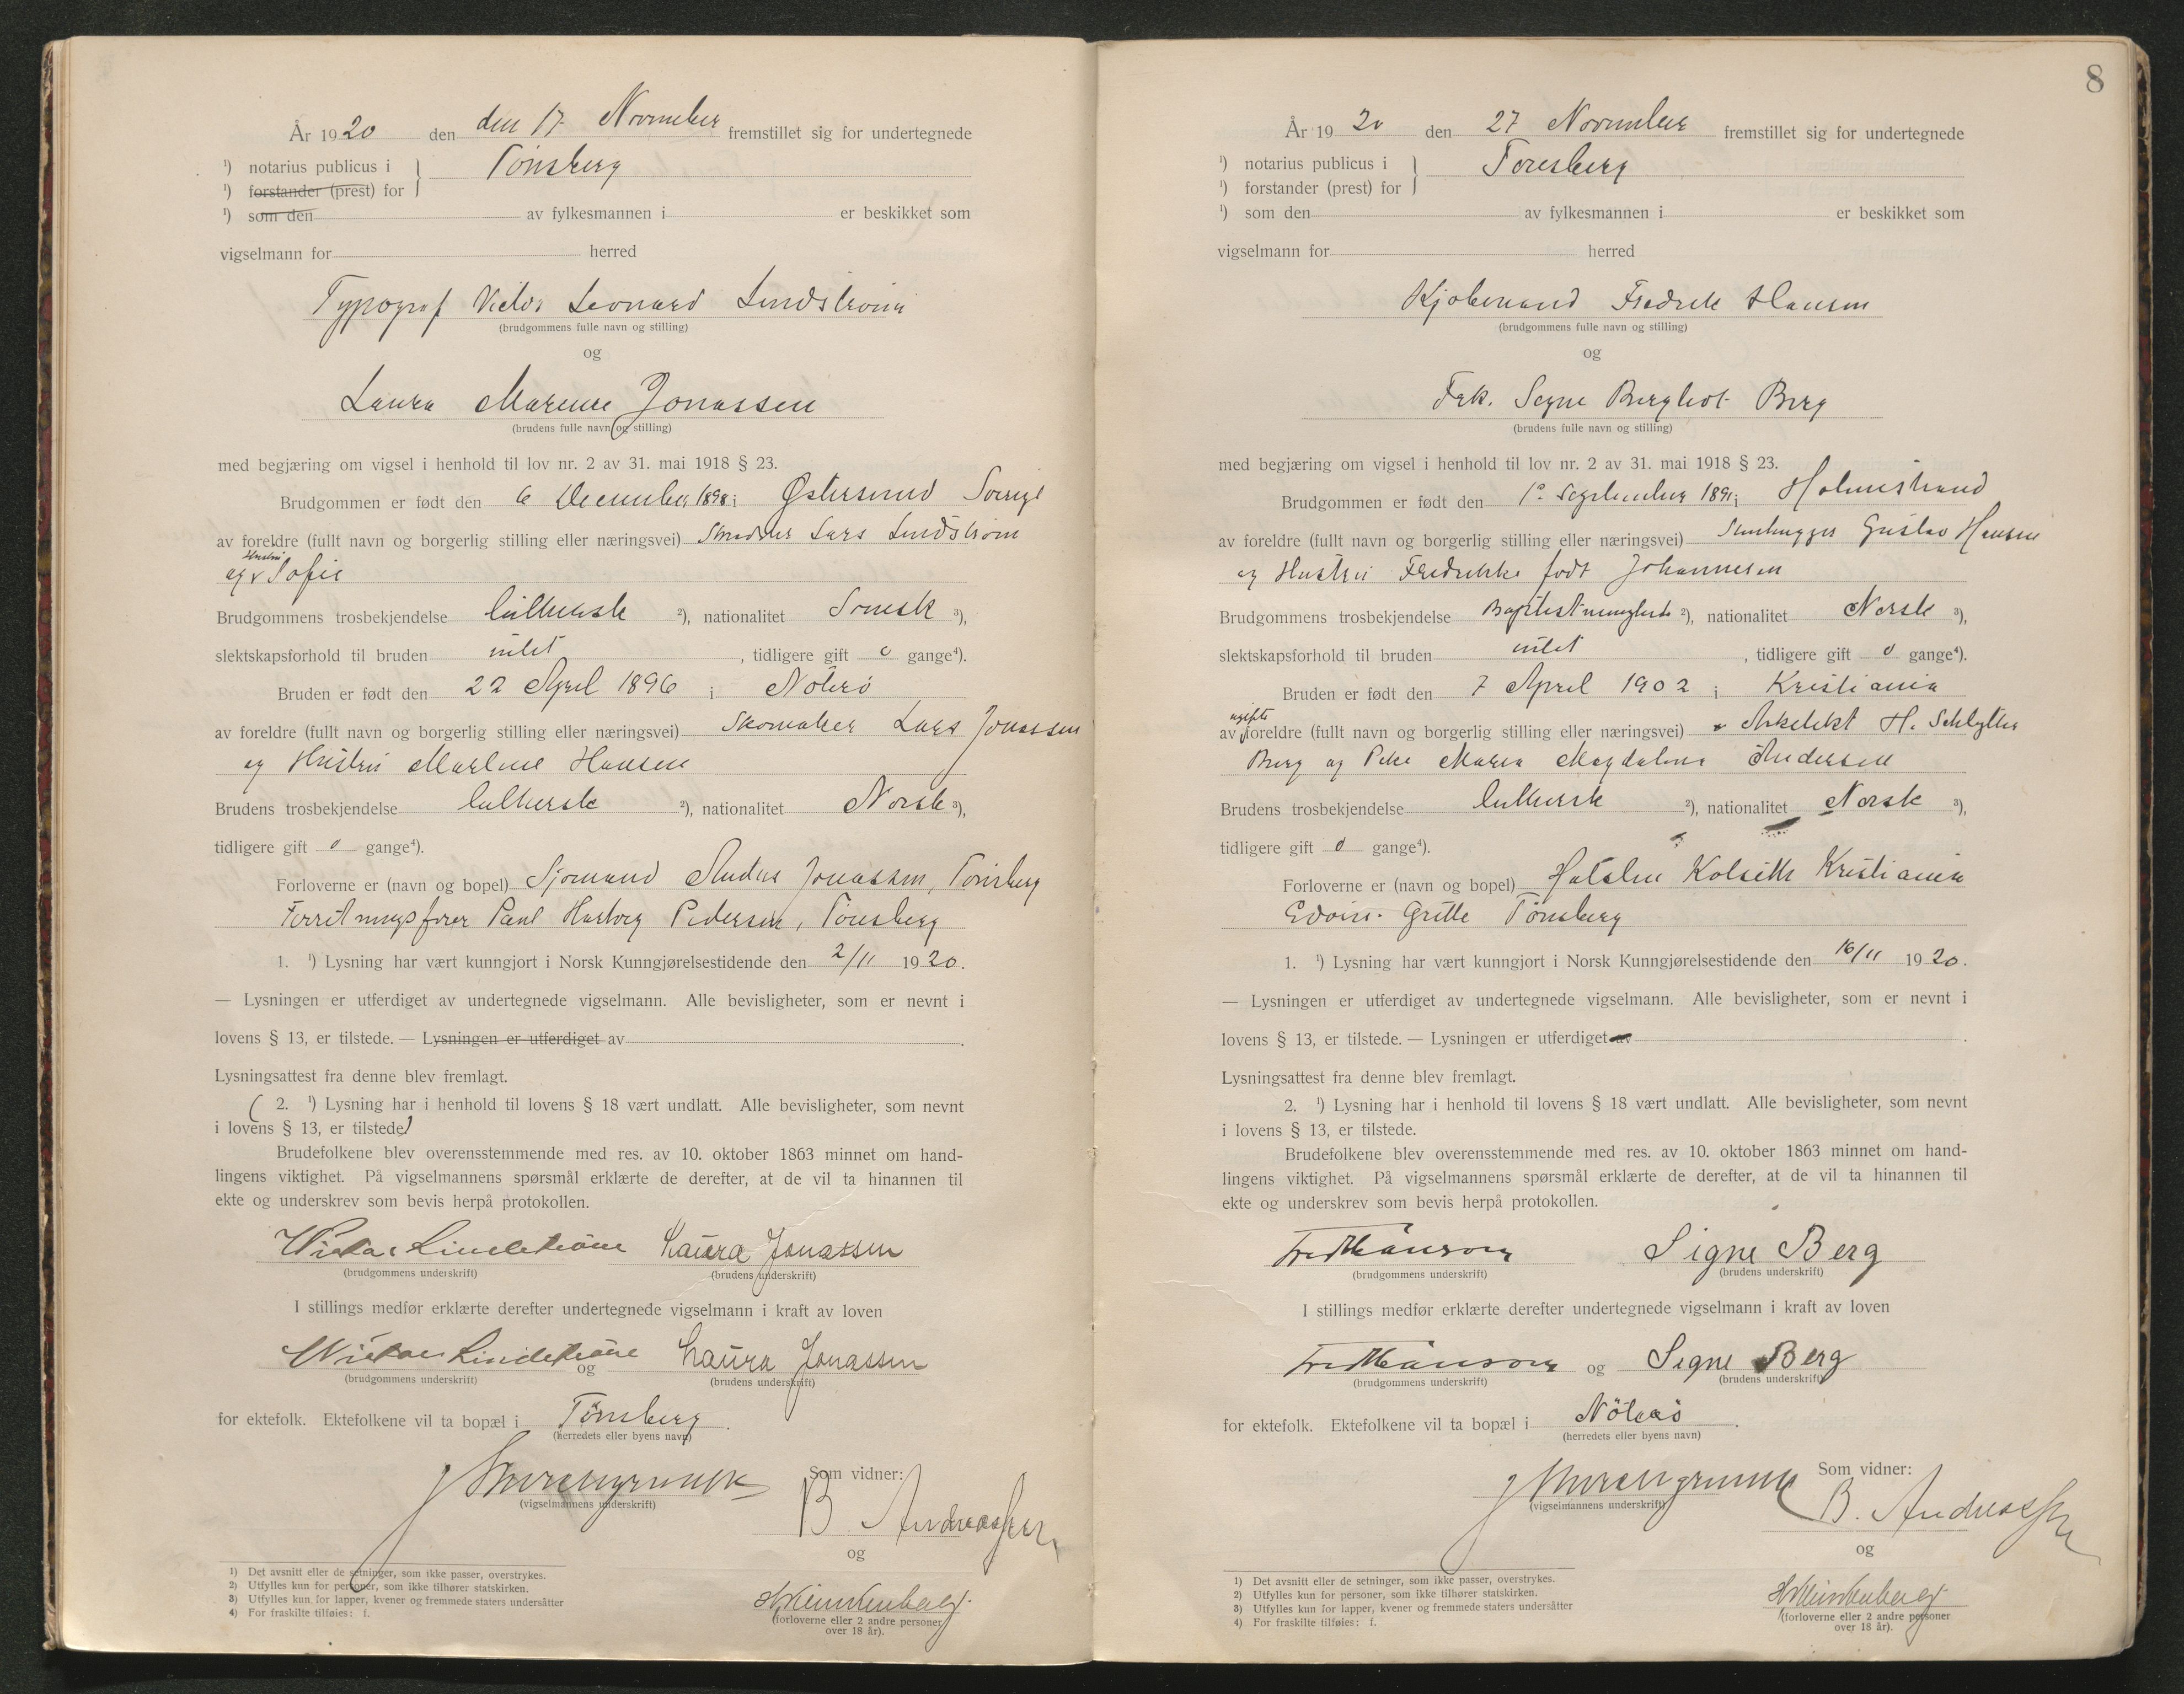 År 1920 den den 17 November fremstillet sig for undertegnede
¹) notarius publicus i } Tönsberg
¹) forstander (prest) for
¹) som den av fylkesmannen i er beskikket som
vigselmann for herred
Typograf Victor Leonard Lindström
(brudgommens fulle navn og stilling)
og
Laura Marence Jonassen
(brudens fulle navn og stilling)
med begjæring om vigsel i henhold til lov nr. 2 av 31. mai 1918 § 23.
Brudgommen er født den 6 December 1898 i Østersund Sverige
av foreldre (fullt navn og borgerlig stilling eller næringsvei) Skrædder Lars Lindström
og Hustru Sofie
Brudgommens trosbekjendelse luthersk ²), nationalitet Svensk ³),
slektskapsforhold til bruden intet , tidligere gift 0 gange⁴).
Bruden er født den 22 April 1896 i Nöterö
av foreldre (fullt navn og borgerlig stilling eller næringsvei) Skomaker Lars Jonassen
og Hustru Marline Hansen
Brudens trosbekjendelse luthersk ²), nationalitet Norsk ³),
tidligere gift 0 gange⁴).
Forloverne er (navn og bopel) Sjömand Andres Jonassen, Tönsberg
Forretningsförer Paul Pedersen, Tönsberg
1. ¹) Lysning har vært kunngjort i Norsk Kunngjørelsestidende den 2/11 1920.
— Lysningen er utferdiget av undertegnede vigselmann. Alle bevisligheter, som er nevnt i
lovens § 13, er tilstede. — Lysningen er utferdiget av .
Lysningsattest fra denne blev fremlagt.
( 2. ¹) Lysning har i henhold til lovens § 18 vært undlatt. Alle bevisligheter, som nevnt
i lovens § 13, er tilstede)
Brudefolkene blev overensstemmende med res. av 10. oktober 1863 minnet om hand-
lingens viktighet. På vigselmannens spørsmål erklærte de derefter, at de vil ta hinannen til
ekte og underskrev som bevis herpå protokollen.
Victor Lindström Laura Jonassen
(brudgommens underskrift) (brudens underskrift)
I stillings medfør erklærte derefter undertegnede vigselmann i kraft av loven
Victor Lindström og Laura Jonassen
(brudgommens underskrift) (brudens underskrift)
for ektefolk. Ektefolkene vil ta bopæl i Tönsberg .
(herredets eller byens navn)
Som vidner:
(vigselmannens underskrift)
B. Andreassen
og
(forloverne eller 2 andre personer
over 18 år).
1) Det avsnitt eller de setninger, som ikke passer, overstrykes.
2) Utfylles kun for personer, som ikke tilhører statskirken.
3) Utfylles kun for lapper, kvener og fremmede staters undersåtter
4) For fraskilte tilføies: f.
8
År 1920 den 27 November fremstillet sig for undertegnede
¹) notarius publicus i } Tönsberg
¹) forstander (prest) for
¹) som den av fylkesmannen i er beskikket som
vigselmann for herred
Kjöbmand Fredrik Hansen
(brudgommens fulle navn og stilling)
og
Frk. Signe Bergliot Berg
(brudens fulle navn og stilling)
med begjæring om vigsel i henhold til lov nr. 2 av 31. mai 1918 § 23.
Brudgommen er født den 1ª September 1891 i Holmestrand
av foreldre (fullt navn og borgerlig stilling eller næringsvei) Stenhugger Gustav Hansen
og Hustru Fredrikke født Johannesen
Brudgommens trosbekjendelse Baptistmenighed ²), nationalitet Norsk ³),
slektskapsforhold til bruden intet , tidligere gift 0 gange⁴).
Bruden er født den 7 April 1902 i Kristiania
av ugifte foreldre (fullt navn og borgerlig stilling eller næringsvei) Arkitekt H. Schlytter
Berg og Pike Maria Magdalena Andersen
Brudens trosbekjendelse luthersk ²), nationalitet Norsk ³),
tidligere gift 0 gange⁴).
Forloverne er (navn og bopel) Kristiania
Edvin Tönsberg
1. ¹) Lysning har vært kunngjort i Norsk Kunngjørelsestidende den 16/11 1920.
— Lysningen er utferdiget av undertegnede vigselmann. Alle bevisligheter, som er nevnt i
lovens § 13, er tilstede. — Lysningen er utferdiget av .
Lysningsattest fra denne blev fremlagt.
2. ¹) Lysning har i henhold til lovens § 18 vært undlatt. Alle bevisligheter, som nevnt
i lovens § 13, er tilstede.
Brudefolkene blev overensstemmende med res. av 10. oktober 1863 minnet om hand-
lingens viktighet. På vigselmannens spørsmål erklærte de derefter, at de vil ta hinannen til
ekte og underskrev som bevis herpå protokollen.
Fredk Hanson Signe Berg
(brudgommens underskrift) (brudens underskrift)
I stillings medfør erklærte derefter undertegnede vigselmann i kraft av loven
Fredk Hanson og Signe Berg
(brudgommens underskrift) (brudens underskrift)
for ektefolk. Ektefolkene vil ta bopæl i Nöterö .
(herredets eller byens navn)
Som vidner:
(vigselmannens underskrift)
B. Andreassen
og
(forloverne eller 2 andre personer
over 18 år).
1) Det avsnitt eller de setninger, som ikke passer, overstrykes.
2) Utfylles kun for personer, som ikke tilhører statskirken.
3) Utfylles kun for lapper, kvener og fremmede staters undersåtter
4) For fraskilte tilføies: f.